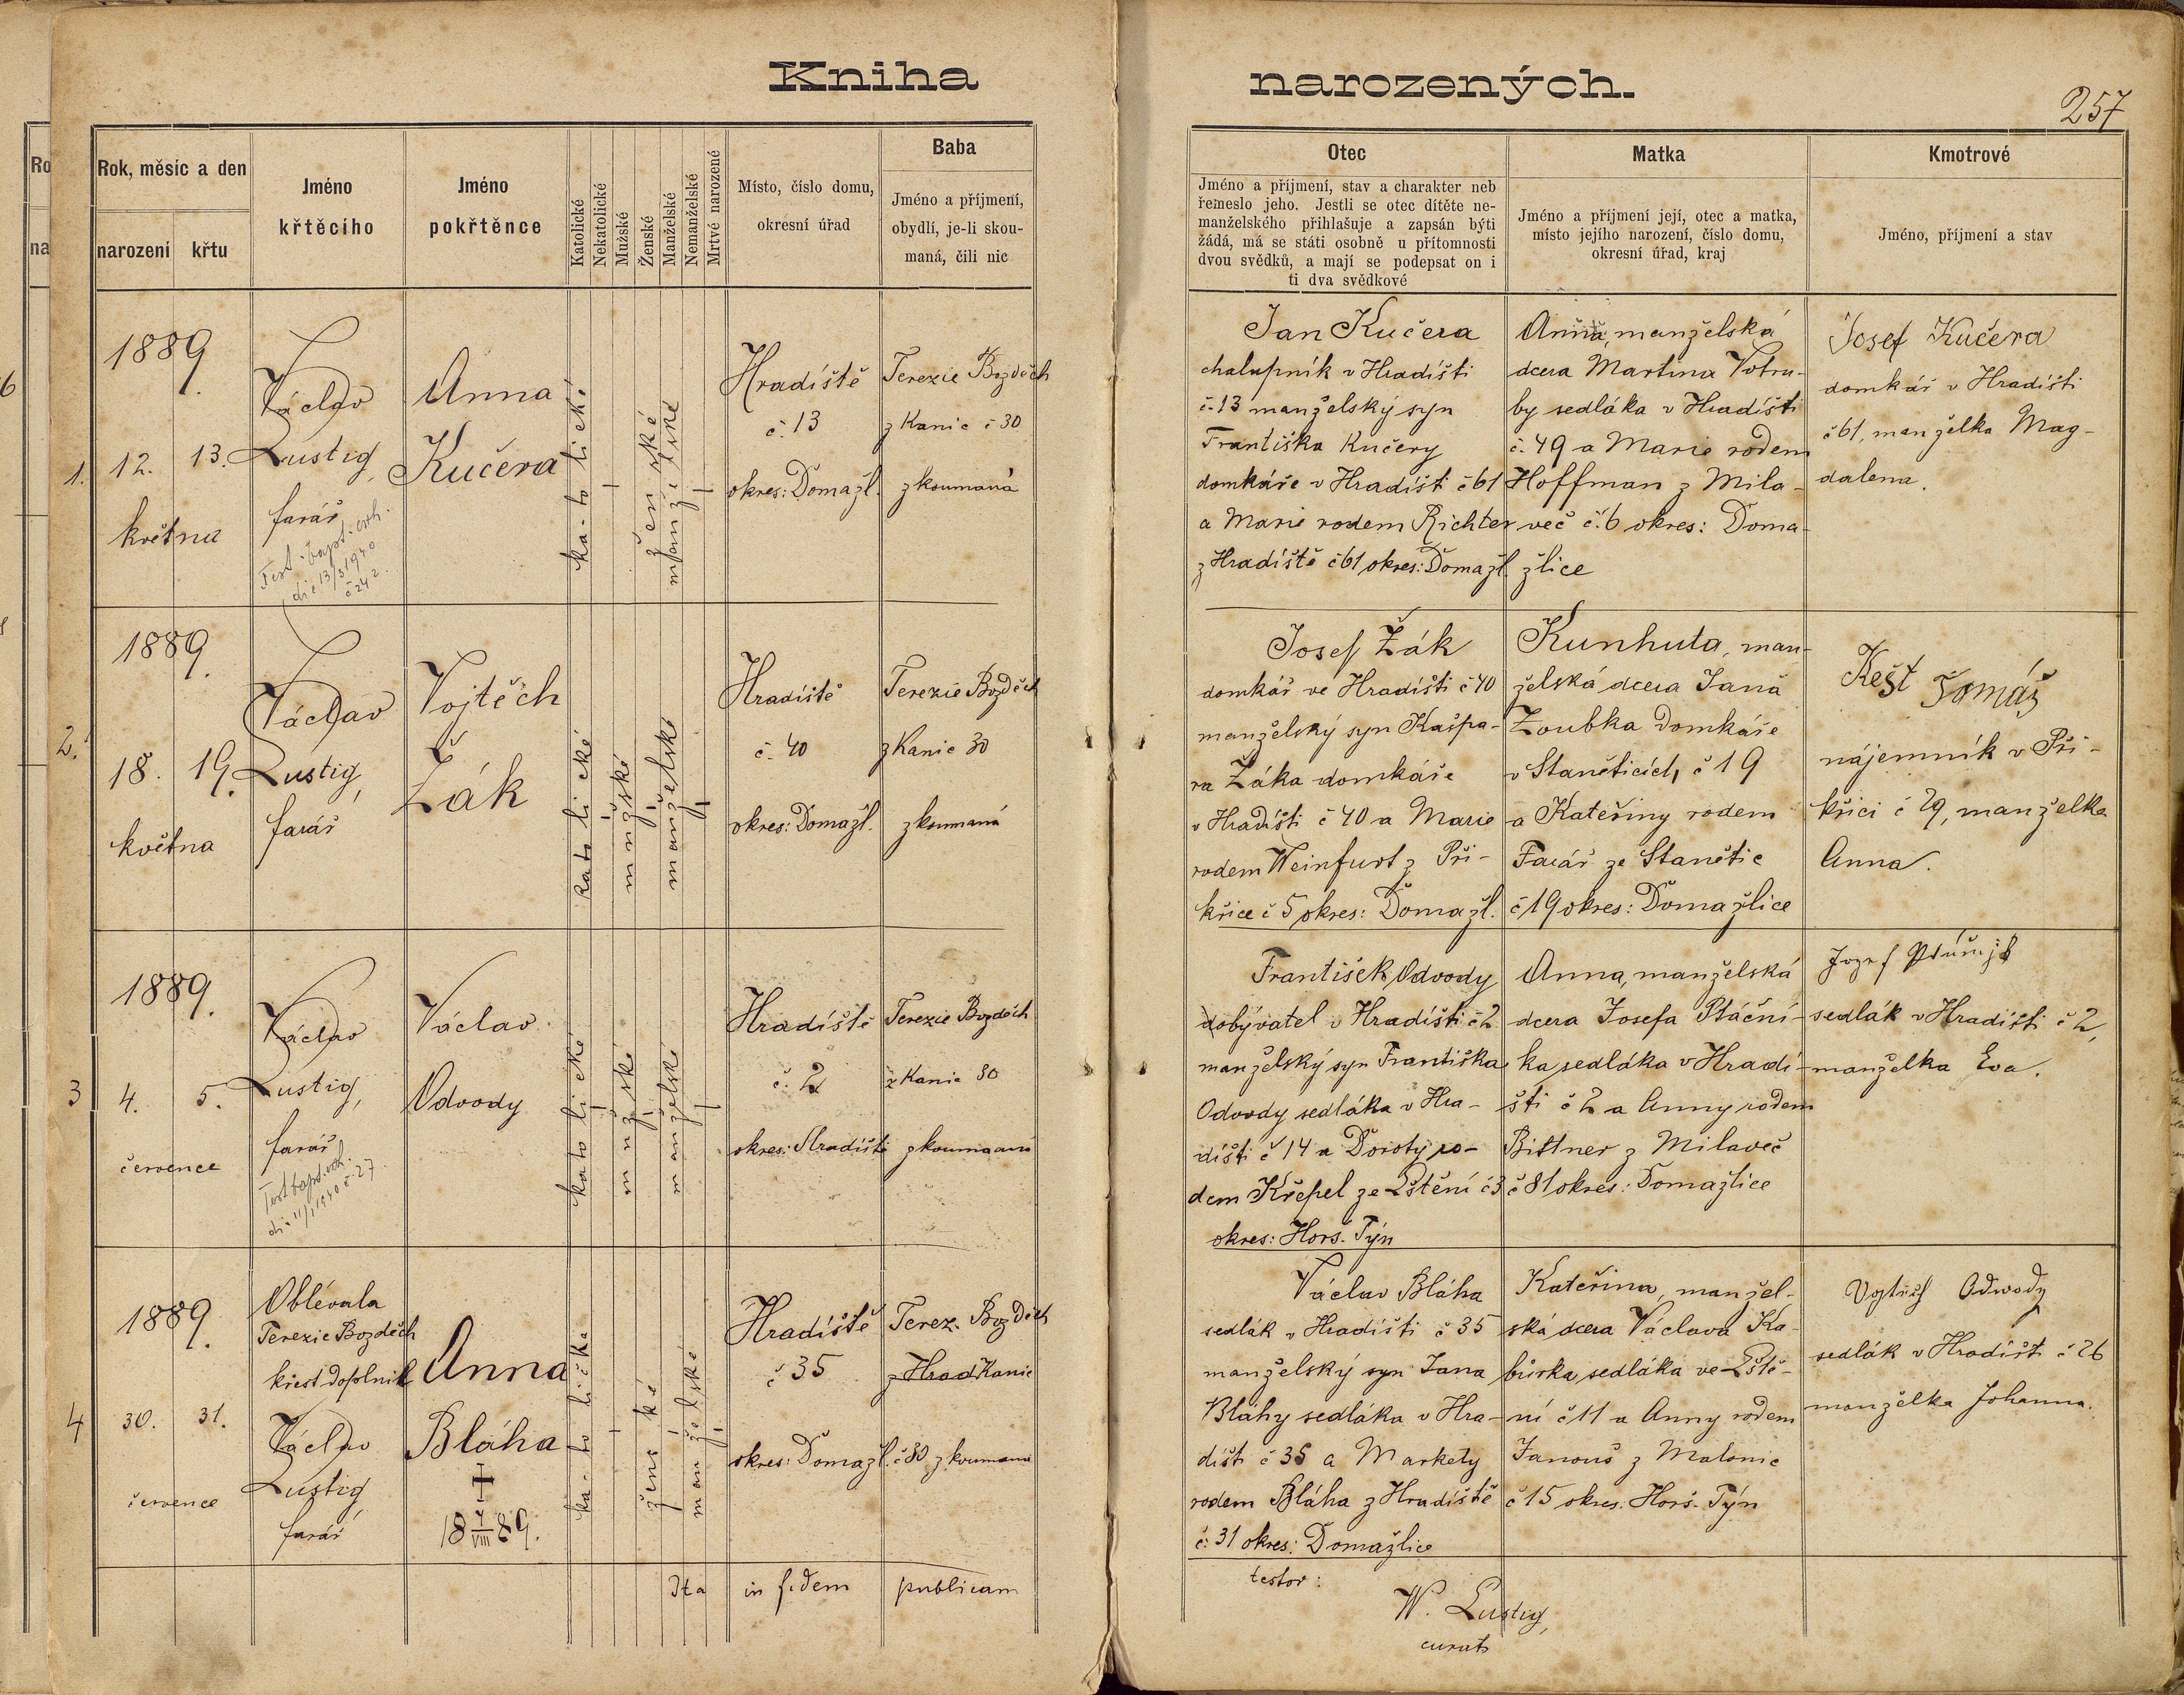 Kniha narozených.
257
Rok, měsíc a den
narození
křtu
Jméno
křtěcího
Jméno
pokřtěnce
Katolické
Nekatolické
Mužské
Ženské
Manželské
Nemanželské
Mrtvé narozené
Místo, číslo domu,
okresní úřad
Baba
Jméno a příjmení,
obydlí, je-li skou-
maná, čili nic
Otec
Jméno a příjmení, stav a charakter neb
řemeslo jeho. Jestli se otec dítěte ne-
manželského přihlašuje a zapsán býti
žádá, má se státi osobně u přítomnosti
dvou svědků, a mají se podepsat on i
ti dva svědkové
Matka
Jméno a příjmení její, otec a matka,
místo jejího narození, číslo domu,
okresní úřad, kraj
Kmotrové
Jméno, příjmení a stav
1.
1889.
12. 13.
května
Václav
Lustig,
farář
Test. bapt. exh.
die 13/3 1940
č 242.
Anna
Kučera
katolické
ženské
manželské
Hradiště
č. 13
okres: Domažl.
Terezie Bozděch
z Kanic č 30
zkoumaná
Jan Kučera
chalupník v Hradišti
č. 13 manželský syn
Františka Kučery
domkáře v Hradišti č 61
a Marie rodem Richter
z Hradiště č 61 okres: Domažl.
Anna, manželská
dcera Martina Votru-
by sedláka v Hradišti
č. 49 a Marie rodem
Hoffman z Mila-
več č. 6 okres: Doma-
žlice
Josef Kučera
domkář v Hradišti
č 61, manželka Mag-
dalena.
2.
1889.
18. 19.
května
Václav
Lustig,
farář
Vojtěch
Žák
katolické
mužské
manželské
Hradiště
č. 40
okres: Domažl.
Terezie Bozděch
z Kanic 30
zkoumaná
Josef Žák
domkář ve Hradišti č 40
manželský syn Kašpa-
ra Žáka domkáře
v Hradišti č 40 a Marie
rodem Weinfurt z Při-
křice č 5 okres: Domažl.
Kunhuta, man-
želská dcera Jana
Zoubka domkáře
v Staněticích č 19
a Kateřiny rodem
Farář ze Stanětic
č 19 okres: Domažlice
Kešt Tomáš
nájemník v Při-
křici č 29, manželka
Anna.
3
1889.
4. 5.
července
Václav
Lustig,
farář
Test bapt. exh.
die 11/1 1940 č. 27.
Václav
Odvody
katolické
mužské
manželské
Hradiště
č. 2
okres: Hradišti
Terezie Bozděch
z Kanic 30
zkoumaaná
František Odvody
dobývatel v Hradišti č 2
manželský syn Františka
Odvody sedláka v Hra-
dišti č 14 a Doroty ro-
dem Křepel ze Lštění č 3
okres: Horš. Týn
Anna, manželská
dcera Josefa Ptáční-
ka sedláka v Hradi-
šti č 2 a Anny rodem
Bittner z Milaveč
č 81 okres: Domažlice
Jozef
sedlák v Hradišti č 2,
manželka Eva.
4
1889.
30. 31.
července
Oblévala
Terezie Bozděch
křest doplnil
Václav
Lustig
farář
Anna
Bláha
✝
18 7/VIII 89.
katolička
ženské
manželské
Hradiště
č 35
okres: Domažl.
Terez. Bozděch
z Hrad Kanic
č 30 zkoumaná
Václav Bláha
sedlák v Hradišti č 35
manželský syn Jana
Bláhy sedláka v Hra-
dišt č 35 a Markety
rodem Bláha z Hradiště
č. 31 okres: Domažlice
Kateřina, manžel-
ská dcera Václava Ka-
bůrka sedláka ve Lště-
ní č 11 a Anny rodem
Janouš z Malonic
č 15 okres. Horš. Týn
Vojtěch Odwody
sedlák v Hradišt č 26
manželka Johanna.
Ita in fidem publicam
testor:
W. Lustig,
curat